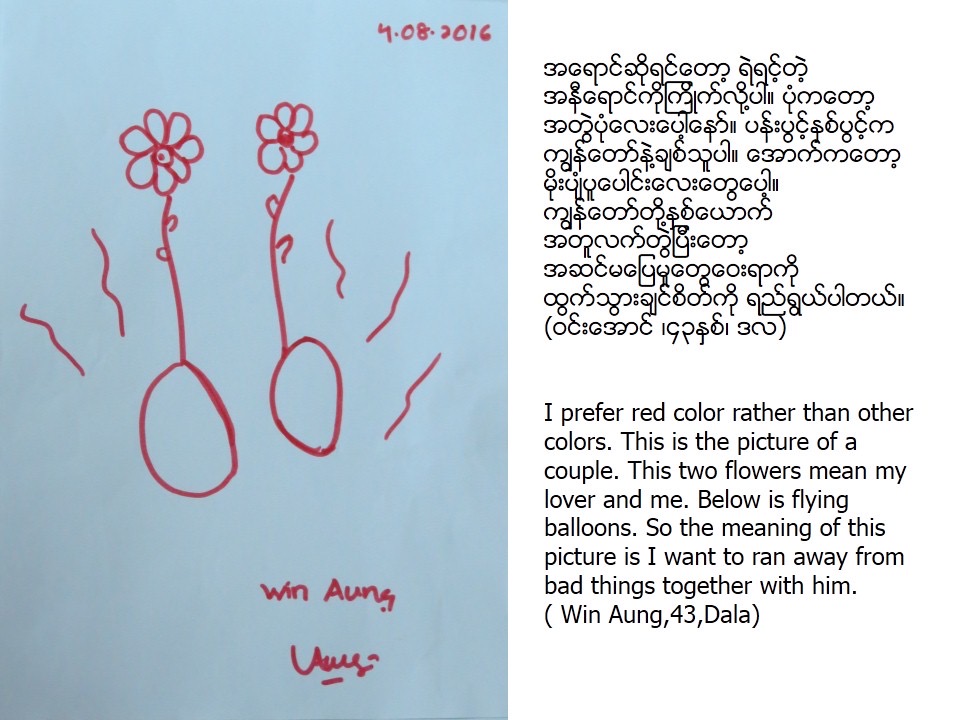 4.08.2016
Win Aung
အရောင်ဆိုရင်တော့ ရဲရင့်တဲ့
အနီရောင်ကိုကြိုက်လို့ပါ။ ပုံကတော့
အတွဲပုံလေးပေါ့နော်။ ပန်းပွင့်နှစ်ပွင့်က
ကျွန်တော်နဲ့ချစ်သူပါ။ အောက်ကတော့
မိုးပျံပူပေါင်းလေးတွေပေါ့။
ကျွန်တော်တို့နှစ်ယောက်
အတူလက်တွဲပြီးတော့
အဆင်မပြေမှုတွေဝေးရာကို
ထွက်သွားချင်စိတ်ကို ရည်ရွယ်ပါတယ်။
(ဝင်းအောင် ၊၄၃နှစ်၊ ဒလ)
I prefer red color rather than other
colors. This is the picture of a
couple. This two flowers mean my
lover and me. Below is flying
balloons. So the meaning of this
picture is I want to ran away from
bad things together with him.
( Win Aung,43,Dala)